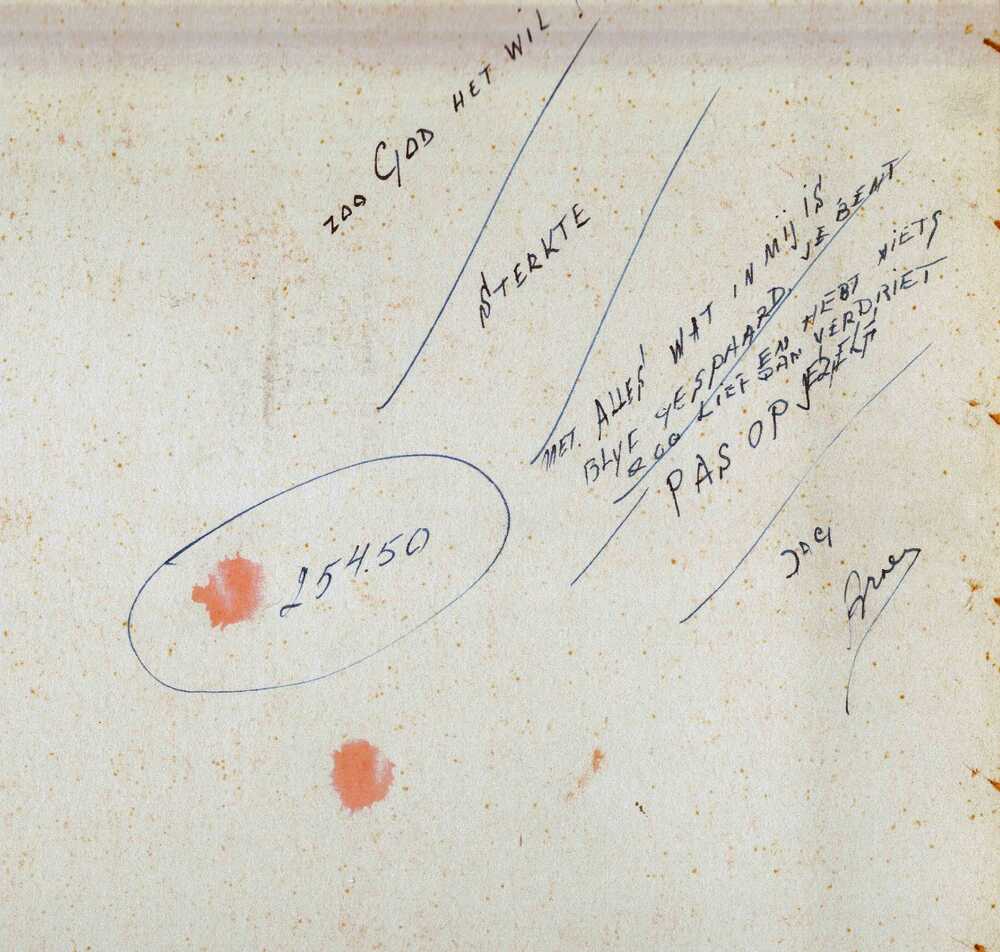 ZOO GOD HET WIL!
STERKTE
MET. ALLES WAT IN MIJ IS
BLYF GESPAARD. JE BENT
ZOO LIEF EN HEBT NIETS
DAN VERDRIET
PAS OP JEZELF
254.50